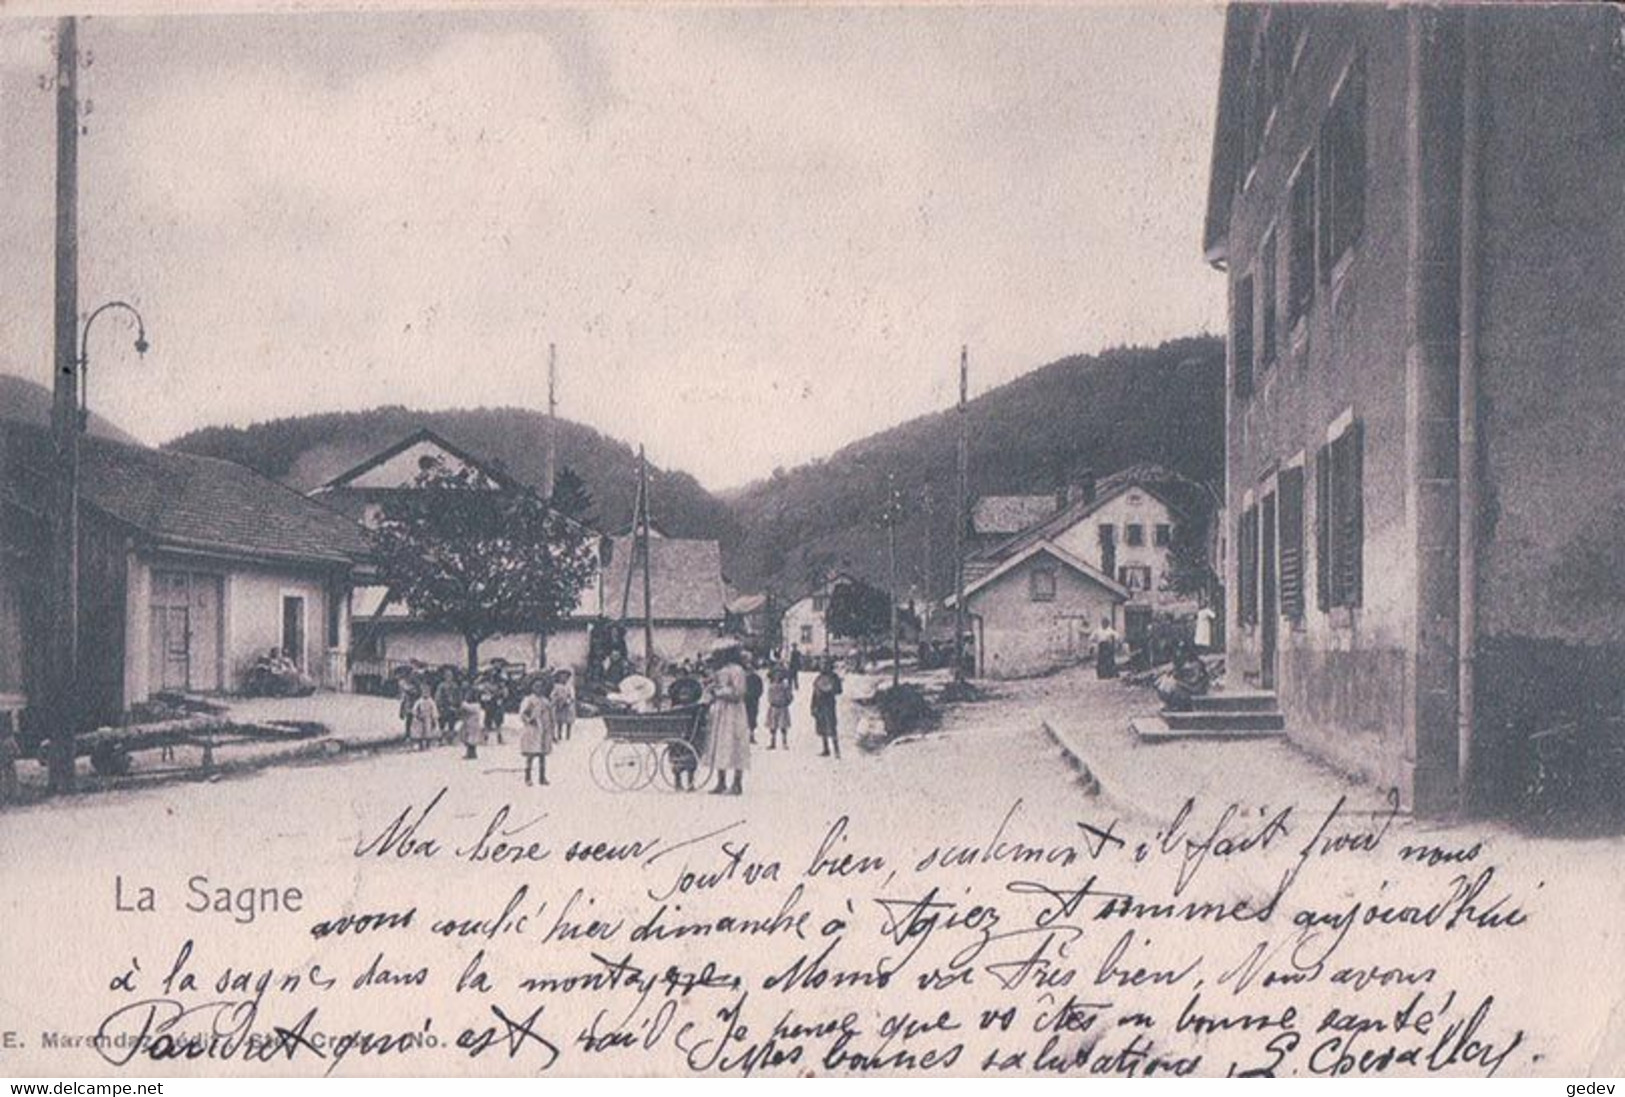 Ma chère soeur
Tout va bien, seulement il fait froid nous
La Sagne
avons couché hier dimanche à Agiez et sommes aujourd'hui
à la sagne dans la montagne, Momo va très bien, Nous avons
E. Marendaz, édit. Ste Croix No.
qui est Je pense que vs êtes en bonne santé
Mes bonnes salutations, E. Chevalley.
La Sagne, Carte précurseur Tachée (1064)
gedev